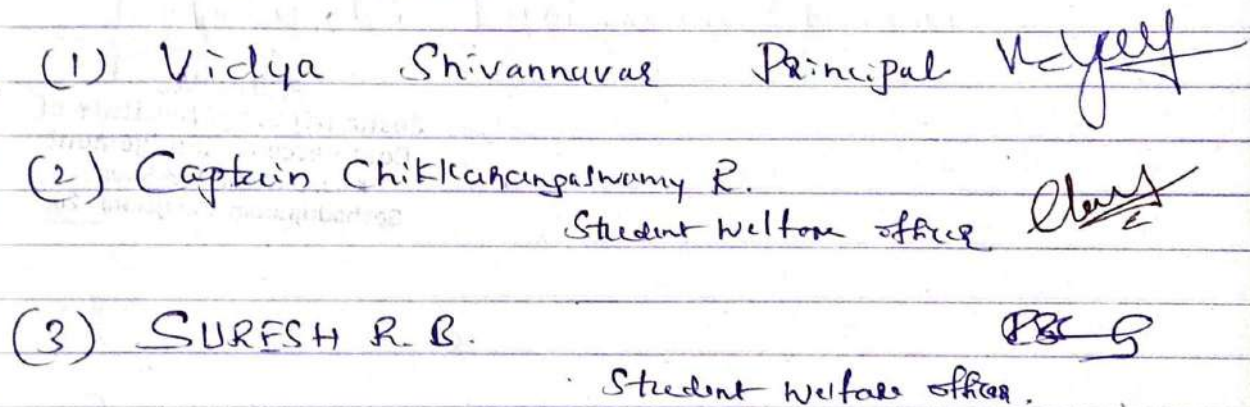 (1) Vidya Shivannavar Principal
(2) Captain Chikkarangaswamy R.
Student Welfare officer
(3) SURESH R. B.
Student Welfare officer.